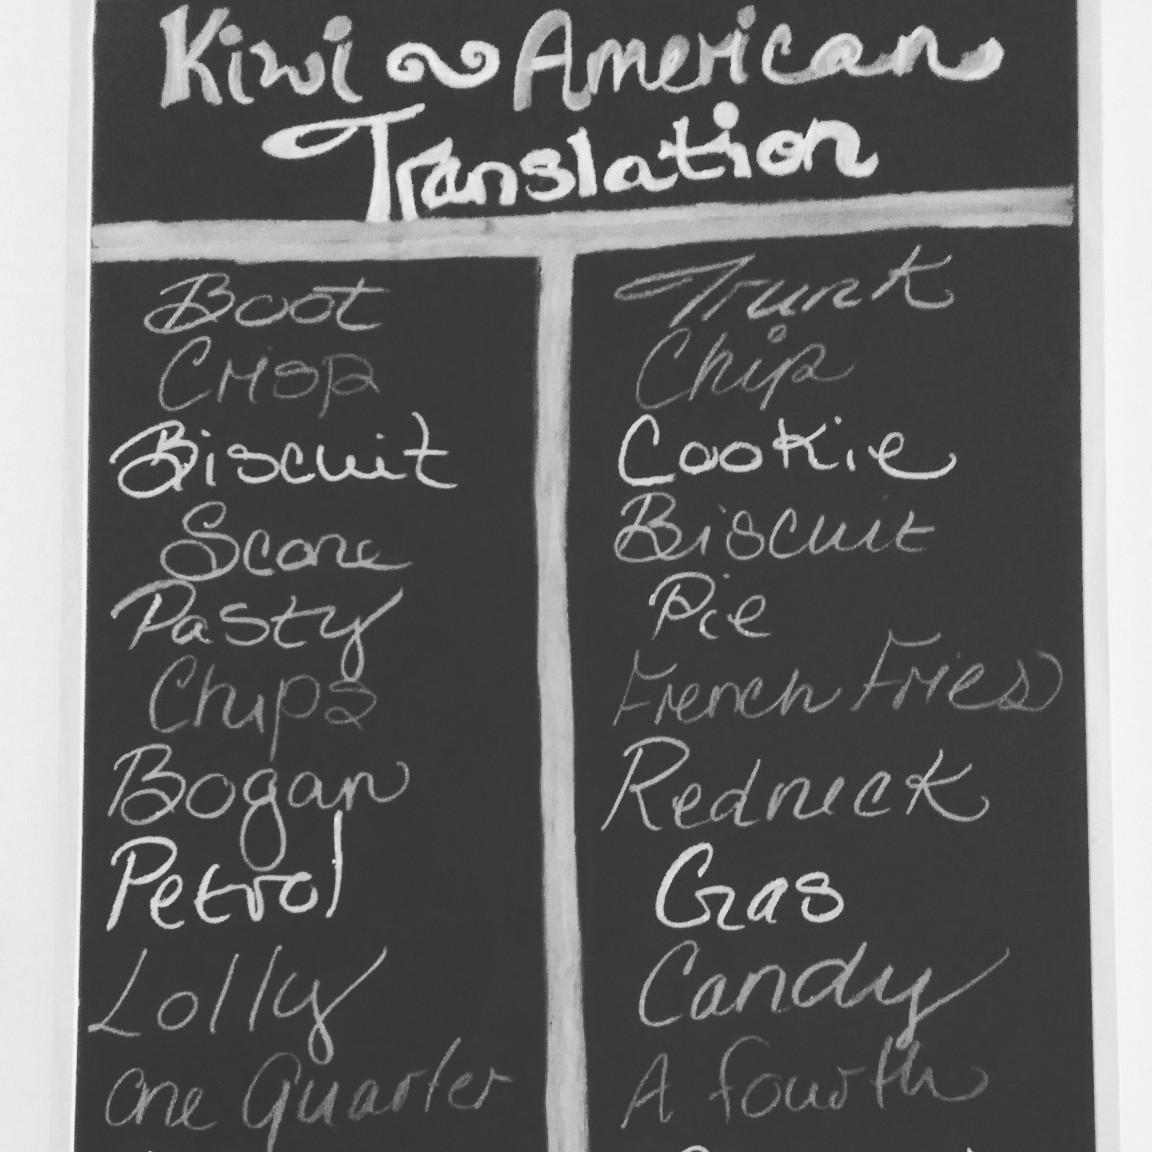 Kiwi ~ American
Translation
Boot Trunk
Crisp Chip
Biscuit Cookie
Scone Biscuit
Pasty Pie
Chips French Fries
Bogan Redneck
Petrol Gas
Lolly Candy
One Quarter A fourth